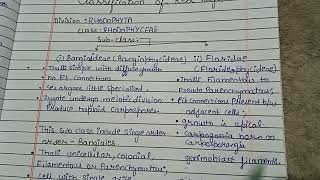 Classification of Red algae
Division: RHODOPHYTA
Class: RHODOPHYCEAE
Sub-class:
(i) Bangioideae (Bangiophycideae) ii) Floridae
(Florideophycideae)
• Thalli simple with diffuse growth
• No Pit connections
• Sex organs little specialized
• Zygote undergo meiotic division
Produce haploid carpospores
• This sub class include single order
order - Bangiales.
• Thalli unicellular, colonial,
filamentous or Parenchymatous,
cell with single
• Thalli filamentous to
Pseudo Parenchymatous,
• Pit connections Present b/w
adjacent cells,
• growth is apical
• Carpogonia born on
Carposporangia
gonimoblast filaments.